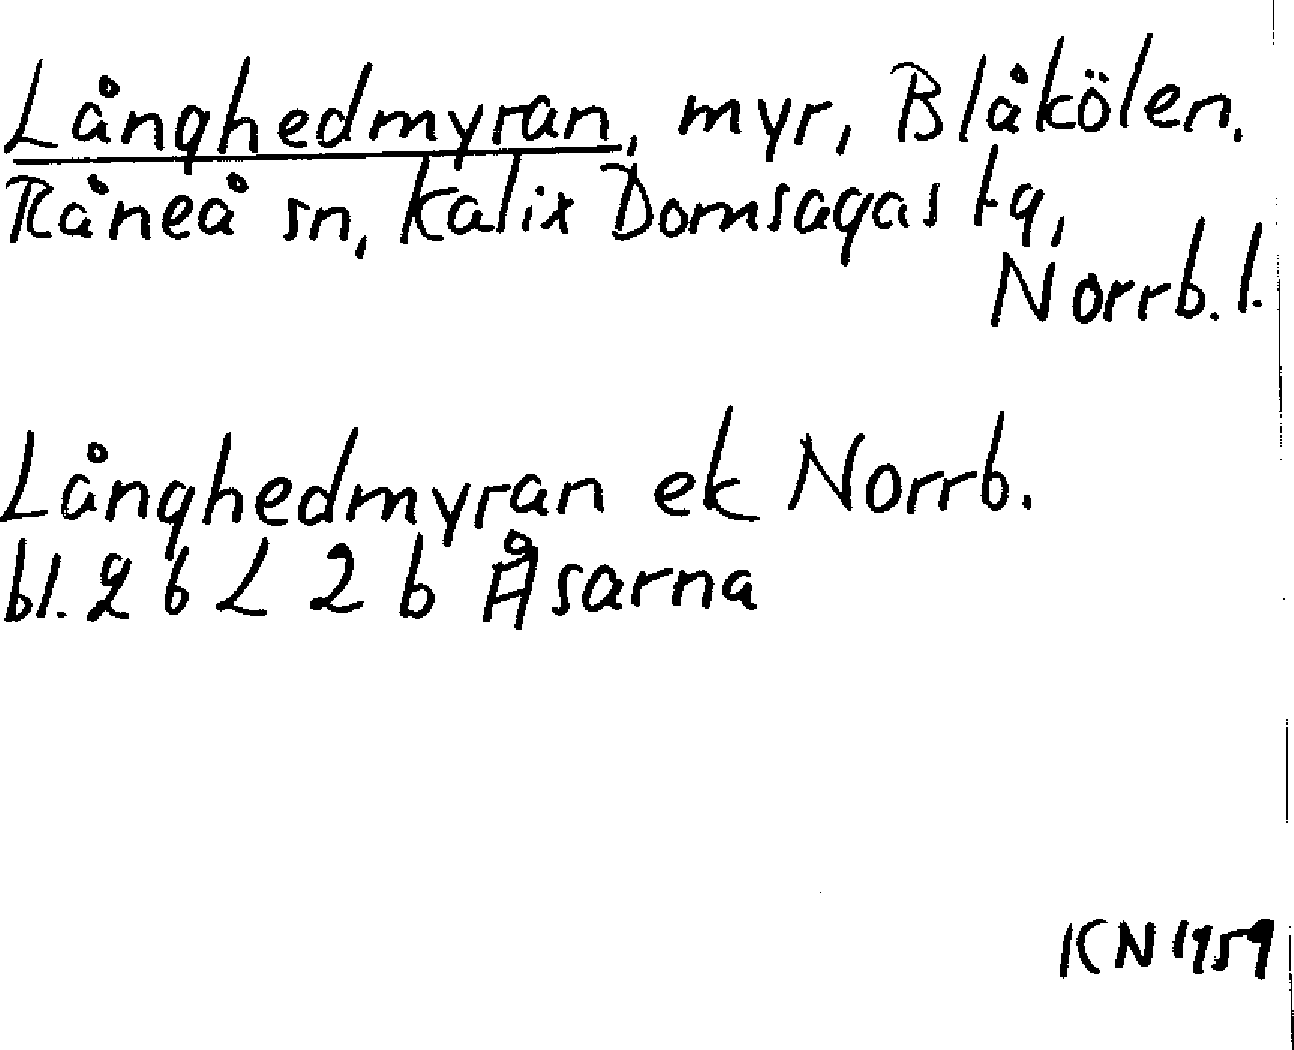 Långhedmyran, myr, Blåkölen.
Råneå sn, Kalix Domsagas tg,
Norrb. l.
Långhedmyran ek Norrb.
bl. 26 L 2 b Åsarna
KN 1959